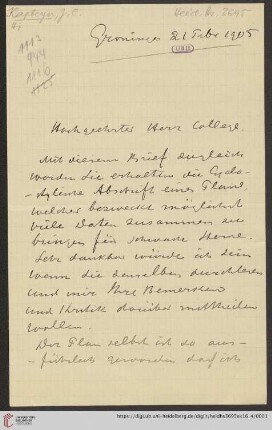 Kapteyn, J. C.
Heid. Hs. 3695
1113
944
1116
Groningen 21 Febr 1905
Hochgeehrter Herr College.
Mit diesem Brief zugleich
werden Sie erhalten die Cyclo-
-stylirte Abschrift eines Plans,
welcher bezweckt möglichst
viele Daten zusammen zu
bringen für schwache Sterne.
Sehr dankbar würde ich sein
wenn Sie denselben durchlesen
und mir Ihre Bemerkungen
und Kritik darüber mittheilen
wollen.
Der Plan selbst ist so aus-
-führlich geworden dass ich